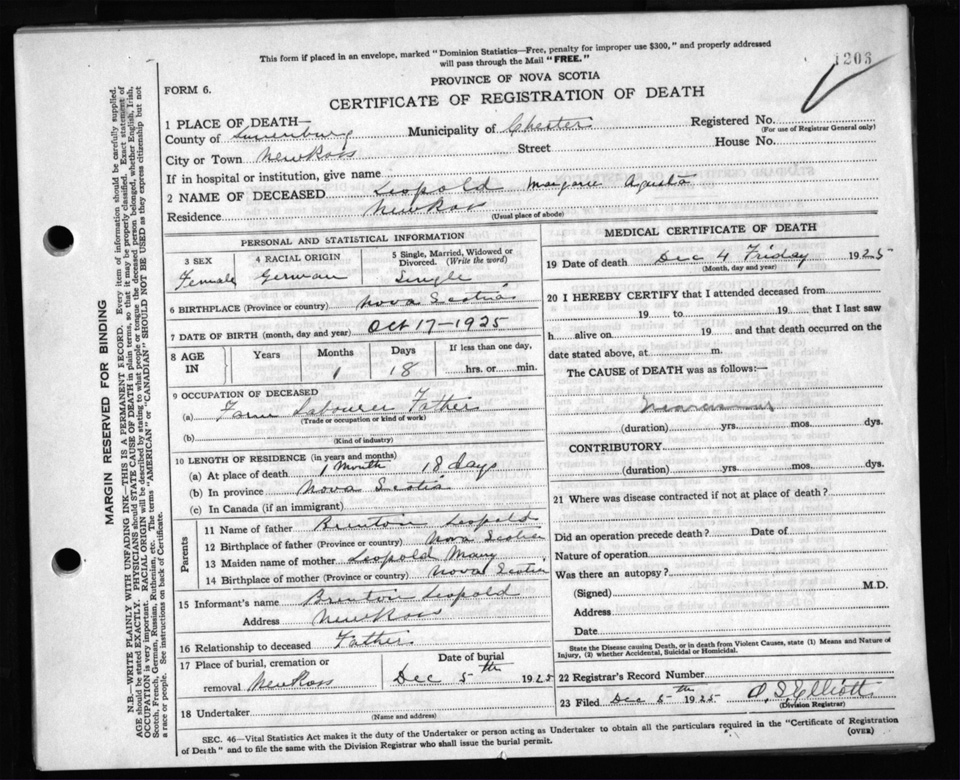 This form if placed in an envelope, marked "Dominion Statistics—Free, penalty for improper use $300," and properly addressed
will pass through the Mail "FREE."
1203
PROVINCE OF NOVA SCOTIA
FORM 6.
CERTIFICATE OF REGISTRATION OF DEATH
1 PLACE OF DEATH—
County of Lunenburg Municipality of Chester Registered No.
(For use of Registrar General only)
City or Town New Ross Street House No.
If in hospital or institution, give name
2 NAME OF DECEASED Leopold Marjorie Agusta
Residence New Ross
(Usual place of abode)
PERSONAL AND STATISTICAL INFORMATION
3 SEX 4 RACIAL ORIGIN 5 Single, Married, Widowed or Divorced. (Write the word)
Female German Single
6 BIRTHPLACE (Province or country) Nova Scotia
7 DATE OF BIRTH (month, day and year) Oct 17-1925
8 AGE IN Years Months Days If less than one day,
1 18 hrs. or min.
9 OCCUPATION OF DECEASED
(a) Farm Labourer Father
(Trade or occupation or kind of work)
(b)
(Kind of industry)
10 LENGTH OF RESIDENCE (in years and months)
(a) At place of death 1 Month 18 days
(b) In province Nova Scotia
(c) In Canada (if an immigrant)
Parents
11 Name of father Brenton Leopold
12 Birthplace of father (Province or country) Nova Scotia
13 Maiden name of mother Leopold Mary
14 Birthplace of mother (Province or country) Nova Scotia
15 Informant's name Brenton Leopold
Address New Ross
16 Relationship to deceased Father
17 Place of burial, cremation or removal New Ross Date of burial Dec 5th 1925
18 Undertaker
(Name and address)
MEDICAL CERTIFICATE OF DEATH
19 Date of death Dec 4 Friday 1925
(Month, day and year)
20 I HEREBY CERTIFY that I attended deceased from
19 to 19 that I last saw
h alive on 19 and that death occurred on the
date stated above, at m.
The CAUSE of DEATH was as follows:—
(duration) yrs. mos. dys.
CONTRIBUTORY
(duration) yrs. mos. dys.
21 Where was disease contracted if not at place of death?
Did an operation precede death? Date of
Nature of operation
Was there an autopsy?
(Signed) M.D.
Address
Date
State the Disease causing Death, or in death from Violent Causes, state (1) Means and Nature of
Injury, (2) whether Accidental, Suicidal or Homicidal.
22 Registrar's Record Number
23 Filed Dec 5th 1925 Elliott
(Division Registrar)
SEC. 46—Vital Statistics Act makes it the duty of the Undertaker or person acting as Undertaker to obtain all the particulars required in the "Certificate of Registration
of Death" and to file the same with the Division Registrar who shall issue the burial permit.
(OVER)
MARGIN RESERVED FOR BINDING
N.B.—WRITE PLAINLY WITH UNFADING INK—THIS IS A PERMANENT RECORD. Every item of information should be carefully supplied.
AGE should be stated EXACTLY. PHYSICIANS should STATE CAUSE OF DEATH in plain terms, so that it may be properly classified. Exact statement of
OCCUPATION is very important. RACIAL ORIGIN will be described by stating to what people or tongue the deceased person belonged, whether English, Irish,
Scotch, French, German, Russian, Ruthenian, etc. The terms "AMERICAN" or "CANADIAN" SHOULD NOT BE USED as they express citizenship but not
a race or people. See instructions on back of Certificate.